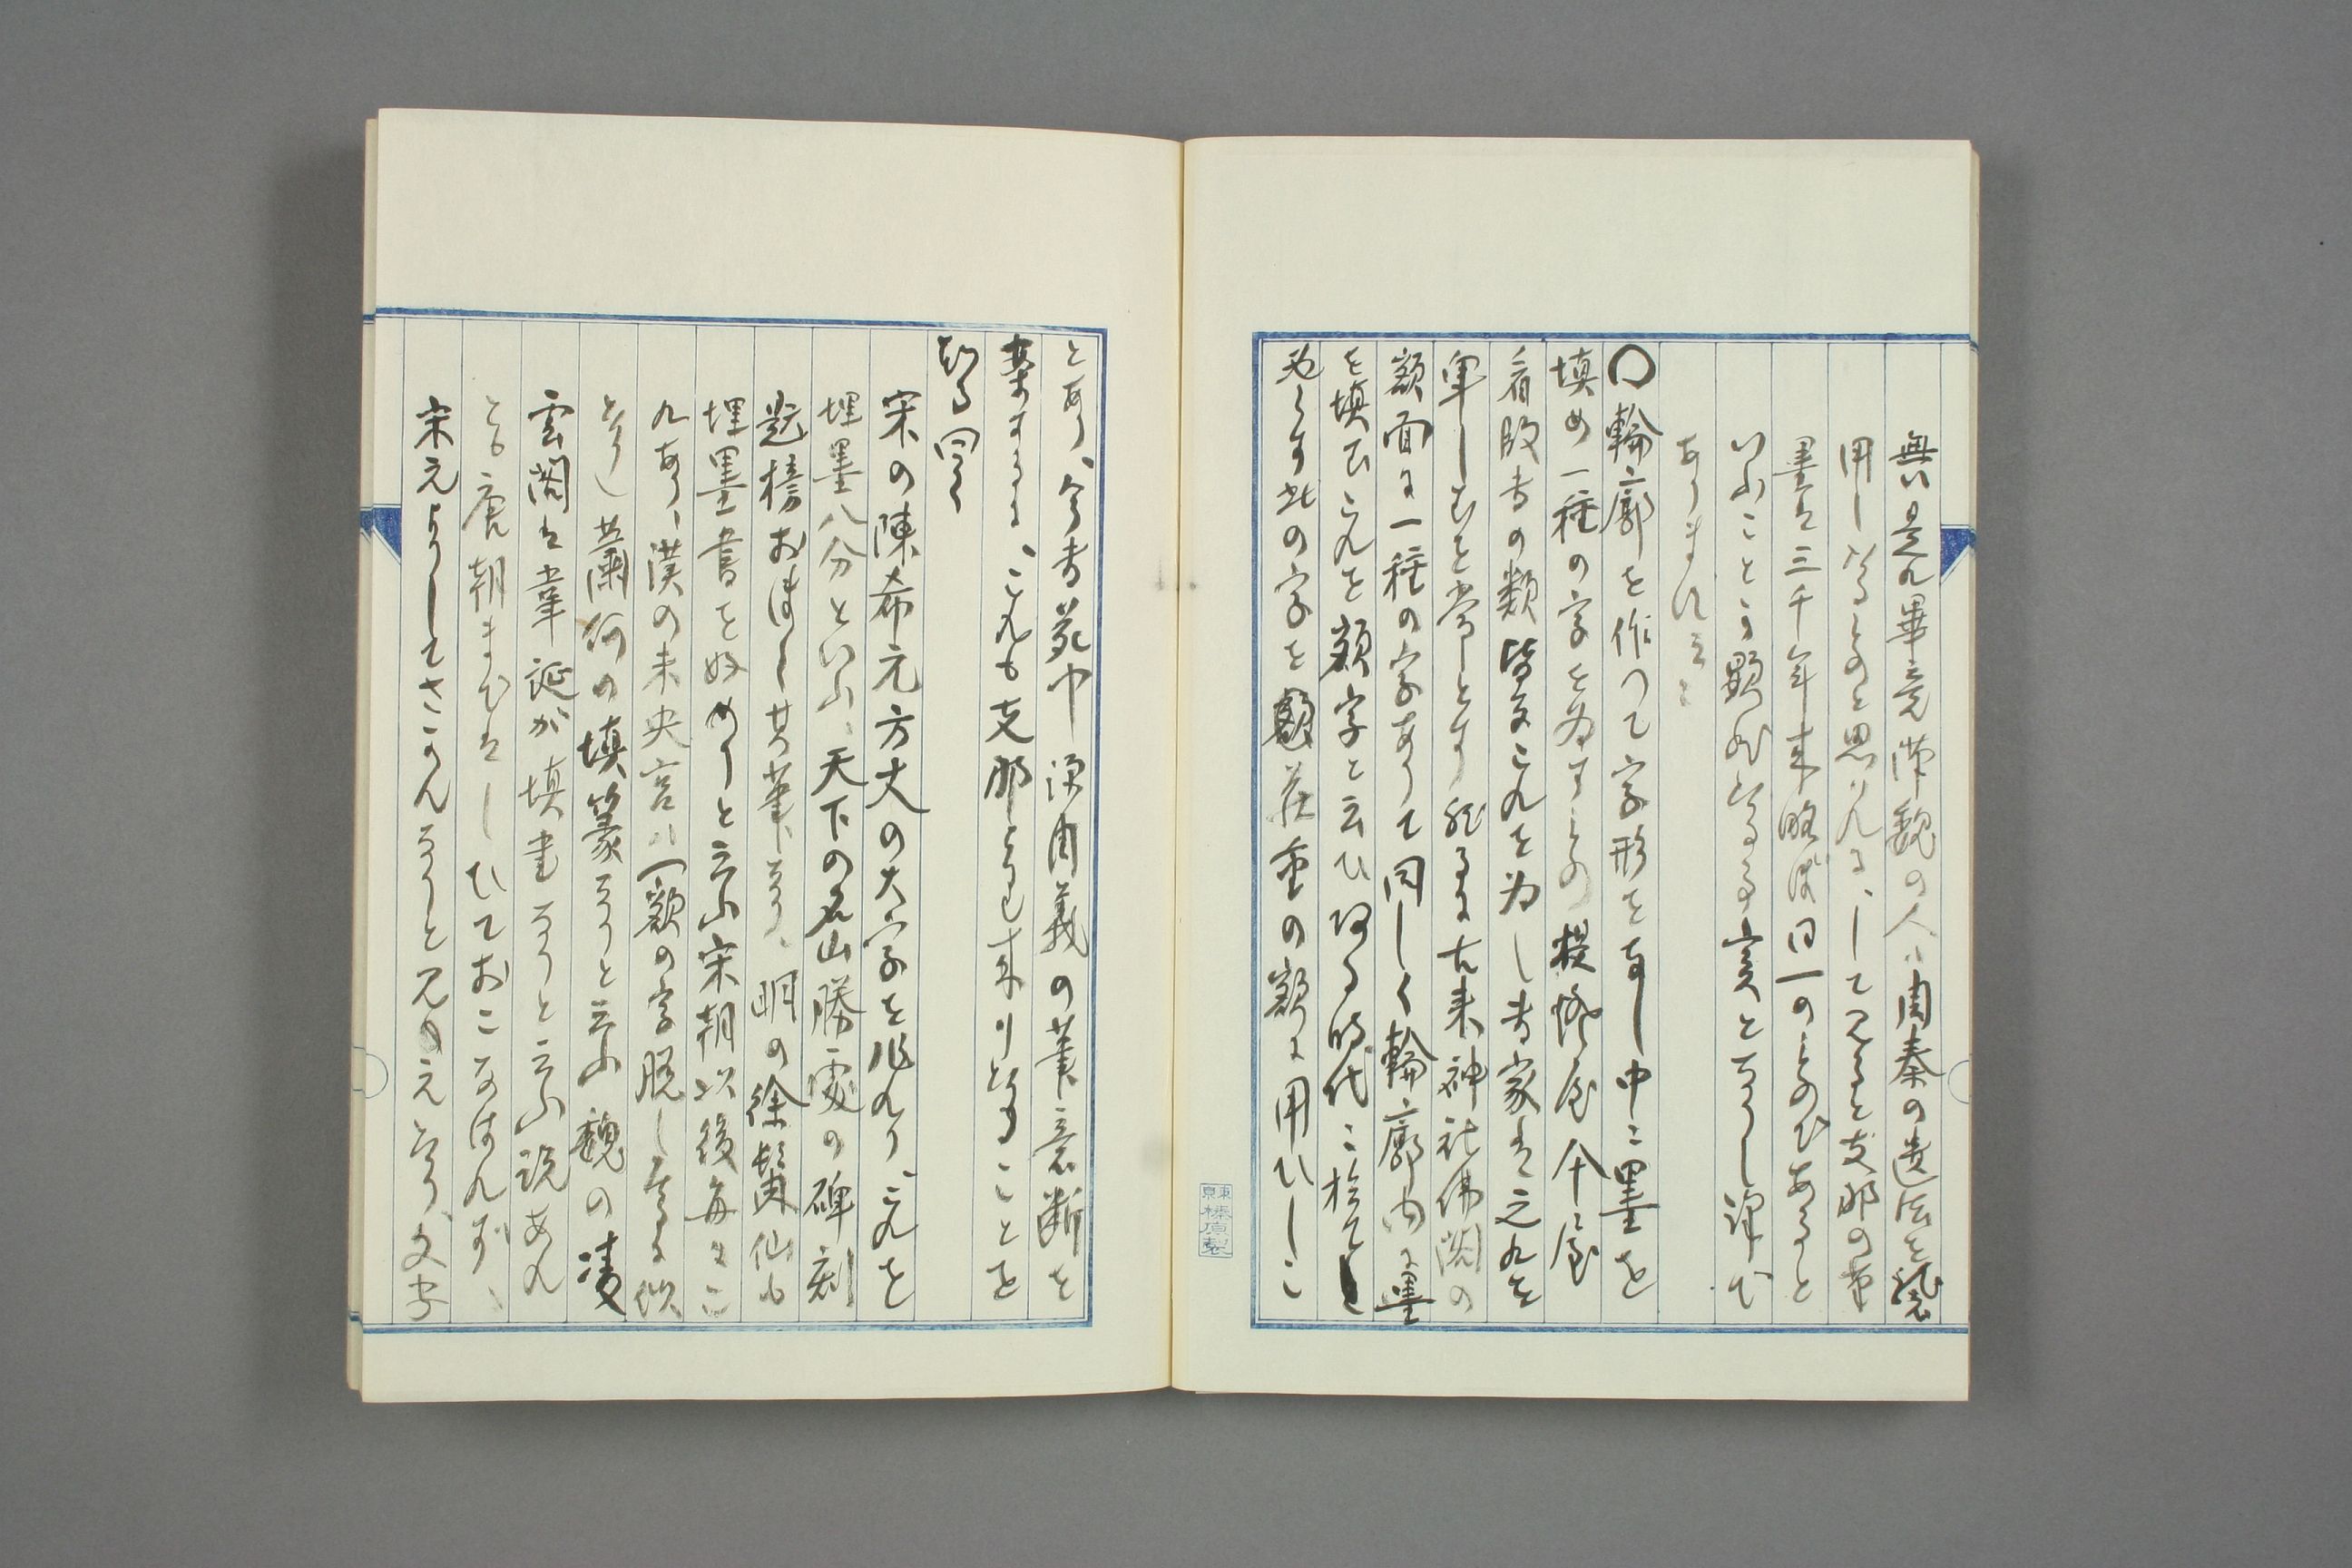 無い是れ畢竟漢魏の人ハ周秦の遺法を襲
用しくるものと思ハれる、して見ると支那の筆
墨は三千年来略ぼ同一のものであると
いふことが顕然となる事実となりし譯で
ありませんと
〇輪廓を作つて字形をなし中に墨を
填め一種の字を為すもの提灯屋傘屋
看版書の類皆なこれを為し書家は之れを
卑しむを常とす然るに古来神社佛閣の
額面に一種の字ありて同しく輪廓内に墨
を填むこれを額字と云ひ或る時代に於ては
此の字を荘重の額に用ひしこ
とあり、今者苑中源有義の筆意断を
案するに、これも支那より来りなることを
知る 曰く
宋の陳希元方丈の大字を作れり、これを
埋墨八分といふ、天下の名山勝處の碑刻
題榜おほく其筆なり、明の徐髯仙も
埋墨書を好めりと云ふ宋朝以後毎にこ
れあり、漢の未央宮ハ(額の字脱しなるに似
たり)蕭何の填篆なりと云ふ魏の凌
雲閣は韋誕が填書なりと云ふ説あれ
とも唐朝まではしひておこなはれず、
宋元よりしてさかんなりと見えたり、文字
東京榛原製